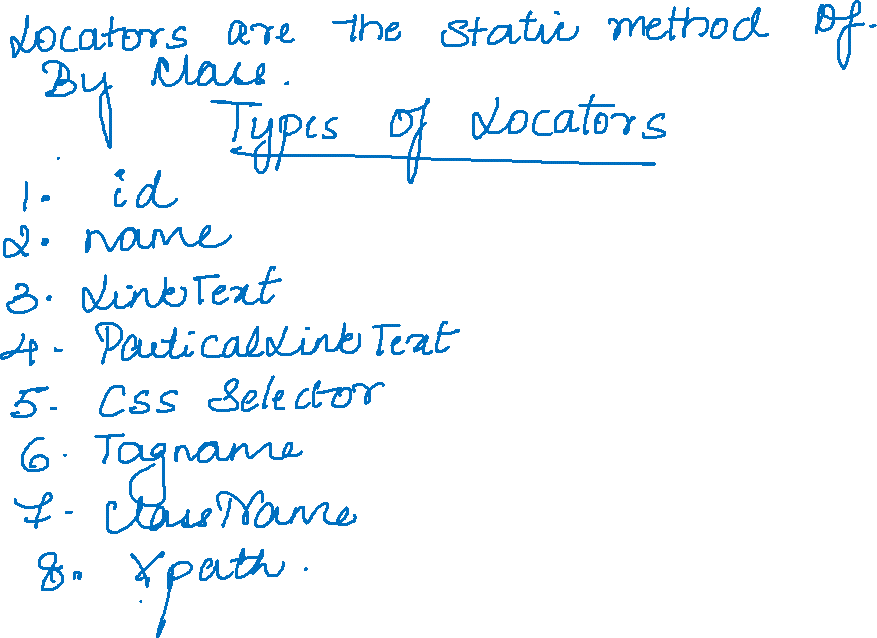 Locators are the static method Of.
By Class.
Types of Locators
1. id
2. name
3. LinkText
4- ParticalLink Text
5- CSS Selector
6. Tagname
7- ClassName
8. Xpath.